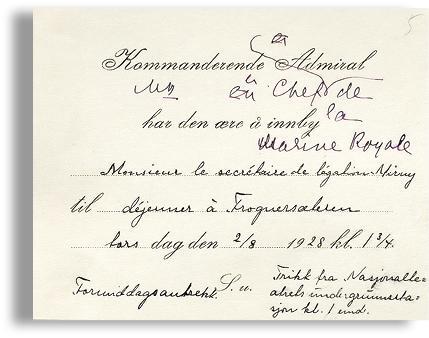 5
Kommanderende Admiral
en Chef de
har den ære å innby
la
Marine Royale
Monsieur le secrétaire de légation
til déjeuner à Frognersæteren
tors dag den 2/8 1928 kl. 1 3/4.
S. u.
Formiddagsantrekk.
Trikk fra Nasjonalthe-
atrets undergrunnssta-
sjon kl. 1 emd.